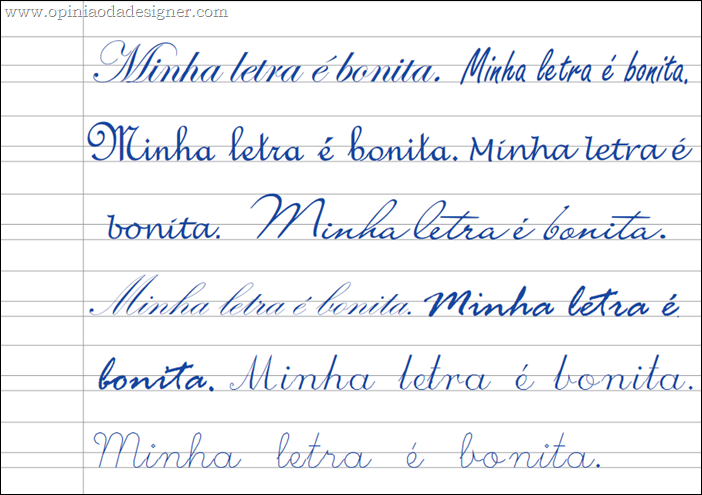 www.opiniaodadesigner.com
Minha letra é bonita. Minha letra é bonita.
Minha letra é bonita. Minha letra é
bonita. Minha letra é bonita.
Minha letra é bonita. Minha letra é
bonita. Minha letra é bonita.
Minha letra é bonita.